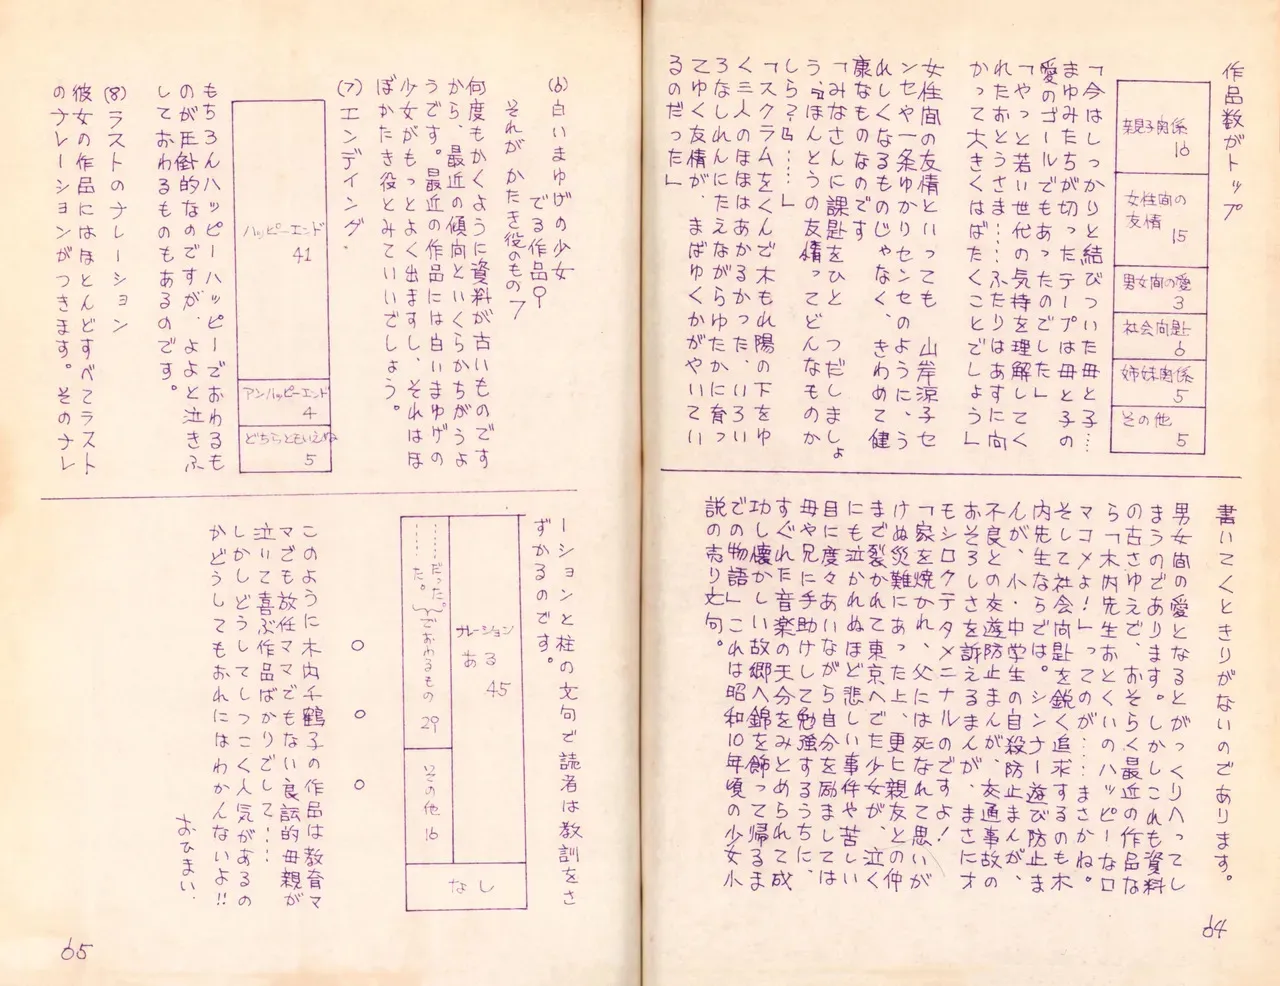 作品数がトップ
親子関係
16
女性向の
友情
15
男女向の愛
3
社会向題
6
姉妹関係
5
その他
5
「今はしっかりと結びついた母と子…
まゆみたちが切ったテープは母と子の
愛のゴールでもあったのでした」
「やっと若い世代の気持を理解してく
れたおとうさま……ふたりはあすに向
かって大きくはばたくことでしょう」
女性间の友情といっても 山岸涼子セ
ンセや一条ゆかりセンセのように、う
れしくなるものじゃなく、きわめて健
康なものなのです
「みなさんに課題をひと つだしましょ
う、『ほんとうの友情ってどんなものか
しら?』……」
「スクラムをくんで木もれ陽の下をゆ
く三人のほほはあかるかった、いろい
ろなしれんにたえながらゆたかに育っ
てゆく友情が、まばゆくかがやいてい
るのだった」
書いてくときりがないのであります。
男女間の愛となるとがっくりへってし
まうのであります。しかしこれも資料
の古さゆえで、おそらく最近の作品な
ら「木内先生おとくいのハッピーなロ
マコメよ!」ってのが……まさかね。
そして社会向題を鋭く追求するのも木
内先生ならでは。シンナー遊び防止ま
んが、小・中学生の自殺防止まんが、
不良との交遊防止まんが、交通事故の
おそろしさを訴えるまんが、まさにオ
モシロクテタメニナルのですよ!
「家を焼かれ、父には死なれて思いが
けぬ災難にあった上、更に親友との仲
まで裂かれて東京へでた少女が、泣く
にも泣かれぬほど悲しい事件や苦しい
目に度々あいながら自分を励ましては
母や兄に手助けして勉強するうちに、
すぐれた音楽の天分をみとめられて成
功し懐かしい故郷へ錦を飾って帰るま
での物語」これは昭和10年頃の少女小
説の売り文句。
64
(6)白いまゆげの少女
でる作品 9
それが かたき役のもの 7
何度もかくように資料が古いものです
から、最近の傾向といくらかちがうよ
うです。最近の作品には白いまゆげの
少女がもっとよく出ますし、それはほ
ぼかたき役とみていいでしょう。
(7)エンディング.
ハッピーエンド
41
アンハッピーエンド
4
どちらともいえぬ
5
もちろんハッピーハッピーでおわるも
のが圧倒的なのですが、よよと泣きふ
しておわるものもあるのです。
(8)ラストのナレーション
彼女の作品にはほとんどすべてラスト
のナレーションがつきます。そのナレ
ーションと柱の文句で読者は教訓をさ
ずかるのです。
ナレーション
ある
45
……だった。
……た。
でおわるもの 29
その他 16
なし
○ ○ ○
このように木内千鶴子の作品は教育マ
マでも放任ママでもない良識的母親が
泣いて喜ぶ作品ばかりでして……
しかしどうしてしつこく人気があるの
かどうしてもおれにはわかんないよ!!
おひまい.
65